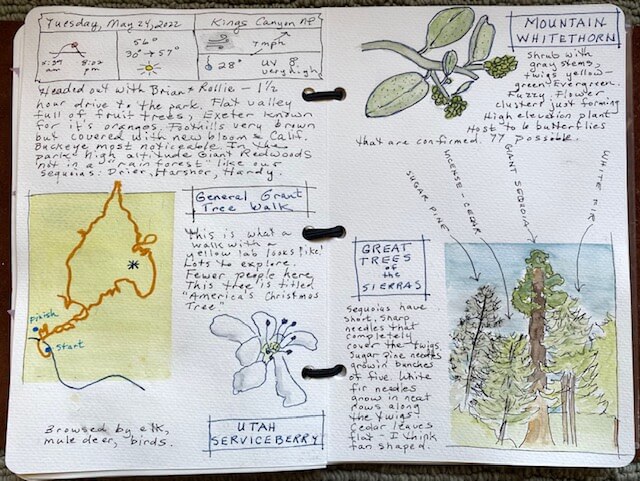 Tuesday, May 24, 2022
Kings Canyon NP
56°
30° → 57°
7mph
28°
UV 8
very high
am
pm
Headed out with Brian & Rollie - 1 1/2
hour drive to the park. Flat valley
full of fruit trees, Exeter known
for it's oranges. Foothills very brown
but covered with new bloom & Calif.
Buckeye most noticeable. In the
park - high altitude Giant Redwoods
not in a "rain forest" like our
sequoias. Drier, Harsher, Hardy.
General Grant
Tree Walk
This is what a
walk with a
yellow lab looks like!
Lots to explore.
Fewer people here.
This tree is titled
"America's Christmas
Tree".
Finish
Start
Browsed by elk,
mule deer, birds.
UTAH
SERVICEBERRY
MOUNTAIN
WHITETHORN
Shrub with
gray stems,
twigs yellow-
green. Evergreen.
Fuzzy flower
clusters just forming
High elevation plant
Host to 6 butterflies
that are confirmed. 77 possible.
SUGAR PINE
INCENSE-CEDAR
GIANT SEQUOIA
WHITE FIR
GREAT
TREES
of the
SIERRAS
Sequoias have
short, sharp
needles that
completely
cover the twigs.
Sugar Pine needles
grow in bunches
of five. White
fir needles
grow in neat
rows along
the twigs -
Cedar leaves
flat - I think
fan shaped.